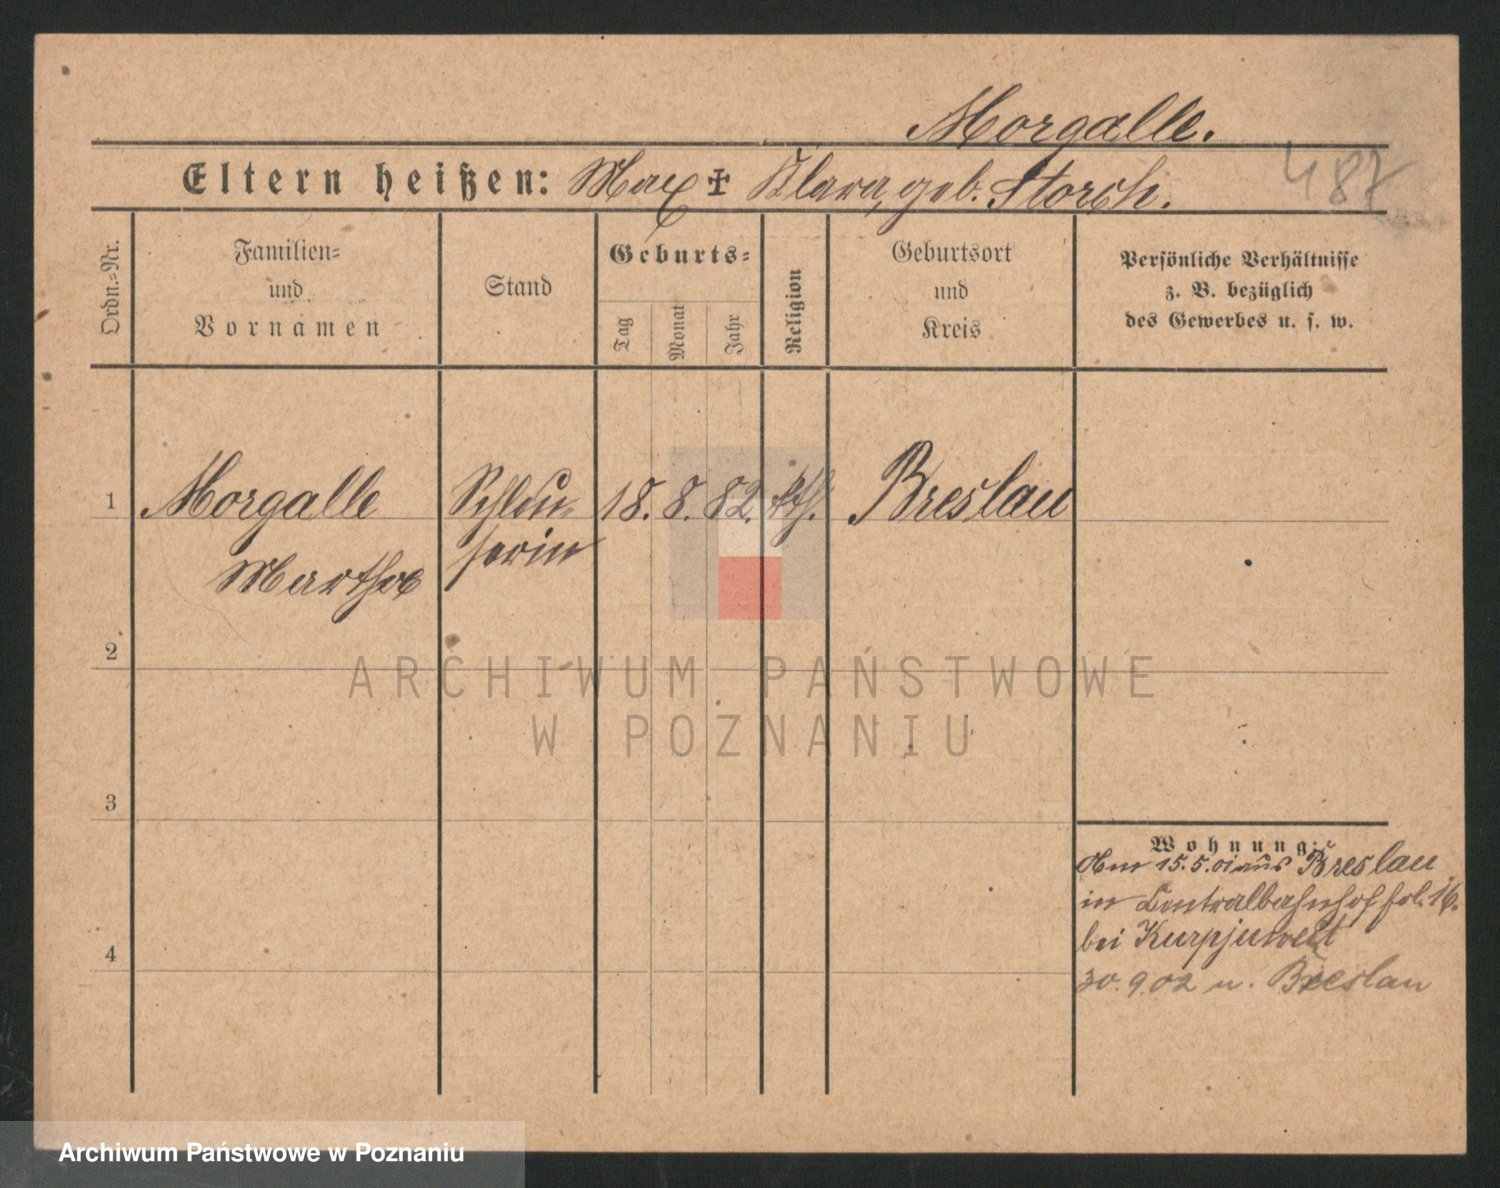 Morgalle.
487
Eltern heißen: Max + Klara, geb. Storch.
Ordn.=Nr.
Familien=
und
Vornamen
Stand
Geburts=
Tag
Monat
Jahr
Religion
Geburtsort
und
Kreis
Persönliche Verhältnisse
z. B. bezüglich
des Gewerbes u. s. w.
1 Morgalle 18. 8. 82. kth. Breslau
serin
Martha
2
ARCHIWUM PAŃSTWOWE
W POZNANIU
3
Wohnung:
Am 15.5.01 aus Breslau
in Centralbahnhof 16.
bei
4
30.9.02 n. Breslau
Archiwum Państwowe w Poznaniu